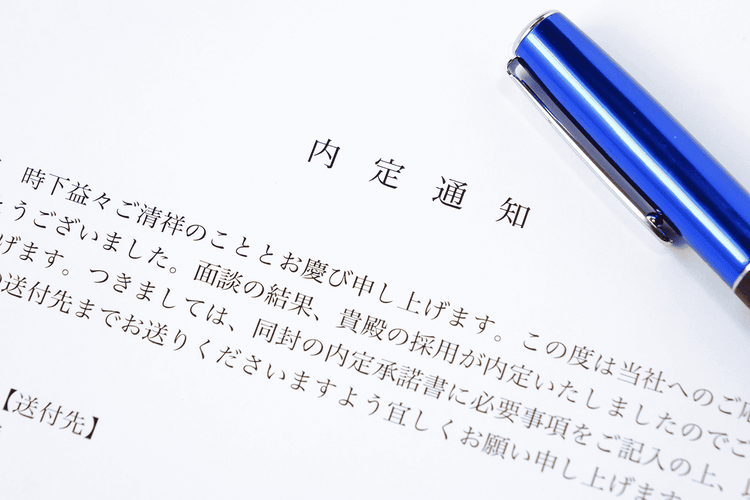 内定通知
時下益々ご清祥のこととお慶び申し上げます。この度は当社へのご応
うございました。面談の結果、貴殿の採用が内定いたしましたのでご
げます。つきましては、同封の内定承諾書に必要事項をご記入の上、
送付先までお送りくださいますよう宜しくお願い申し上げます
【送付先】